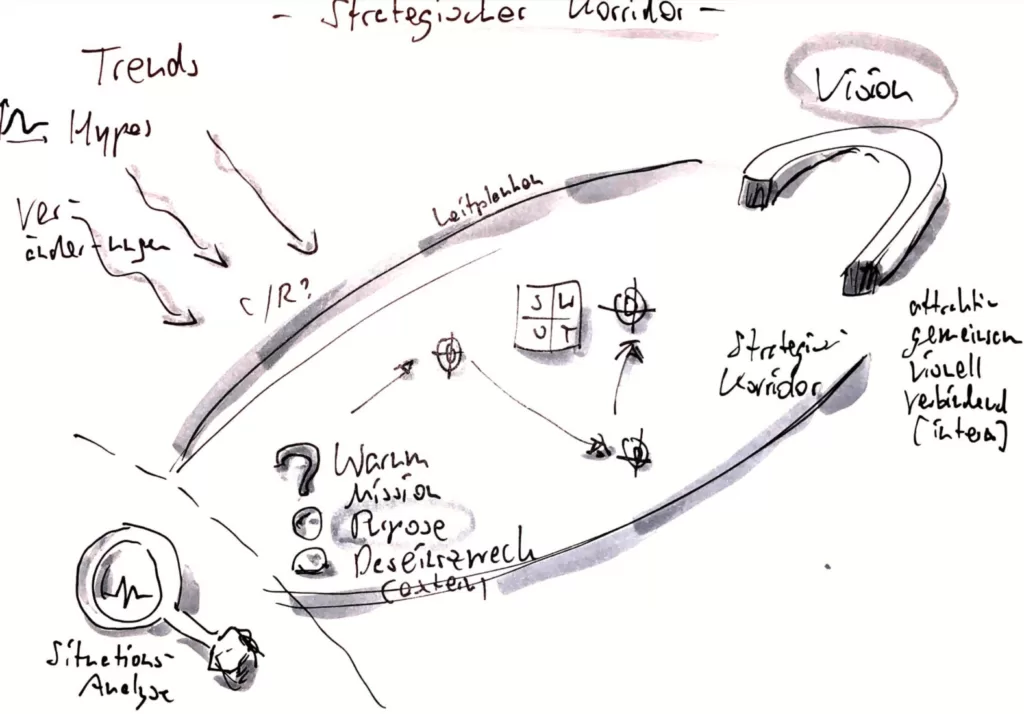 - Strategischer Korridor -
Trends
Hypes
Ver-
änder-ungen
C/R?
Leitplanken
Vision
S W
O T
Strategi
Korridor
attraktiv
gemeinsam
visuell
verbindend
(intern)
Warum
Mission
Purpose
Daseinszweck
(extern)
Situations-
Analyse